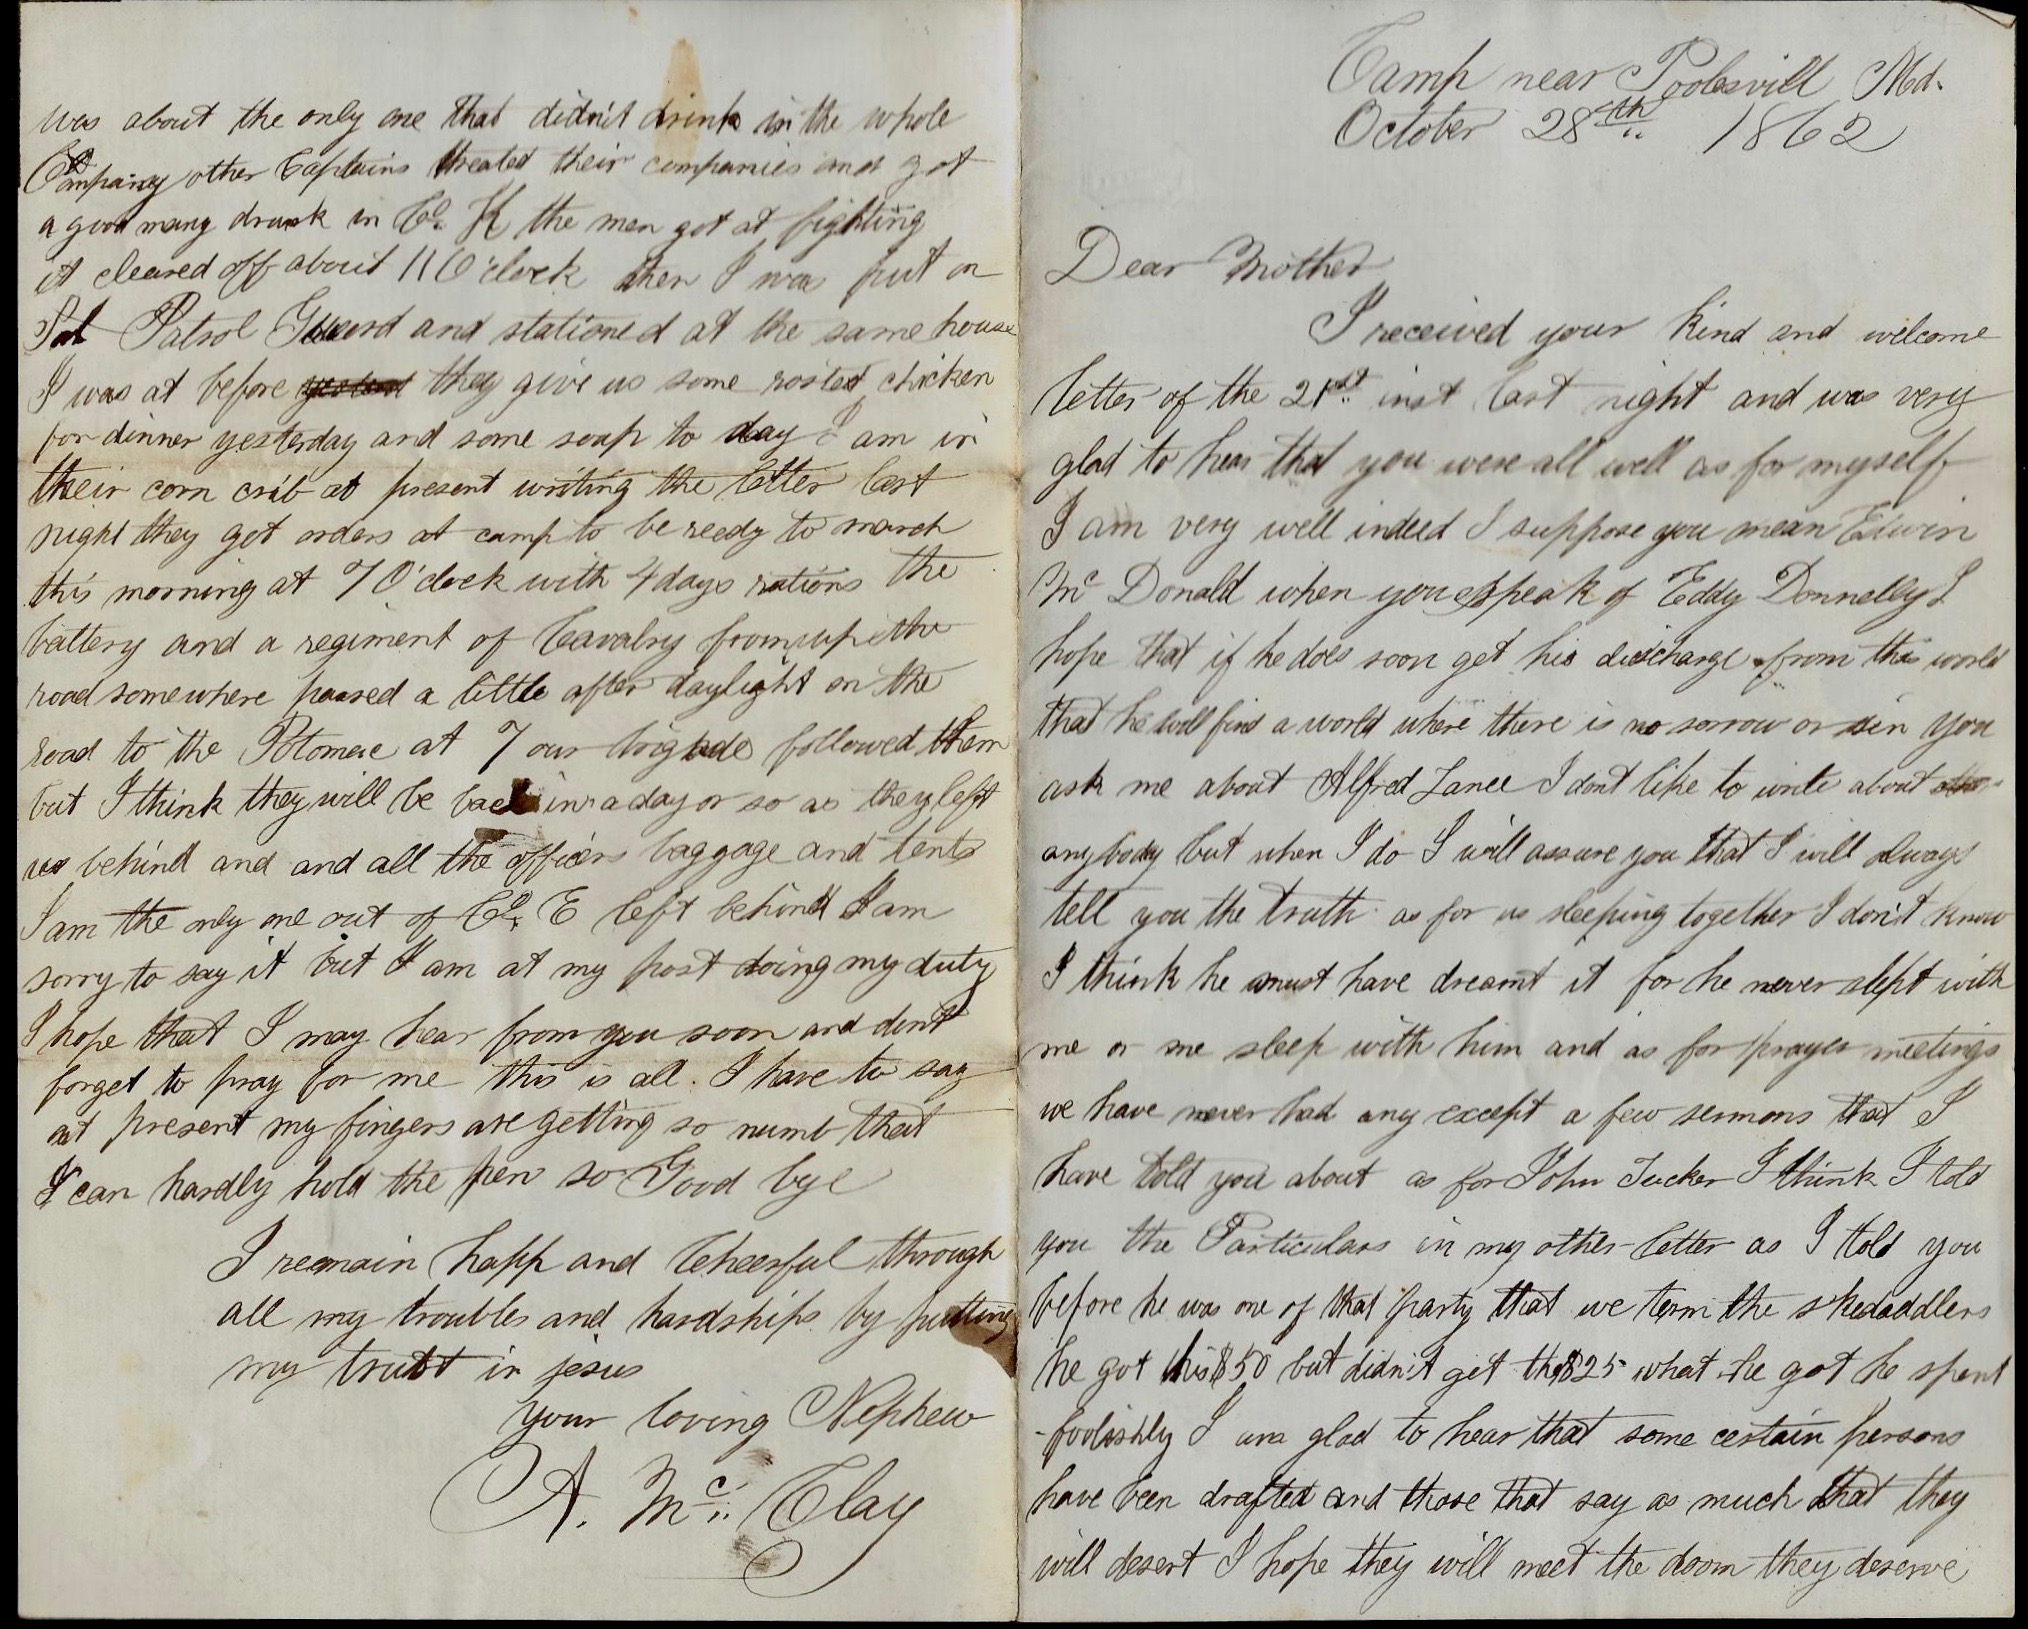 Camp near Poolesvill Md.
October 28th 1862
Dear Mother
I received your kind and welcome
letter of the 21st inst last night and was very
glad to hear that you were all well as for myself
I am very well indeed I suppose you mean Edwin
Mc Donald when you speak of Eddy Donnelly I
hope that if he does soon get his discharge from this world
that he will find a world where there is no sorrow or sin you
ask me about Alfred Lance I dont like to write about
anybody but when I do I will assure you that I will always
tell you the truth as for us sleeping together I don't know
I think he must have dreamt it for he never slept with
me or me sleep with him and as for prayer meetings
we have never had any except a few sermons that I
have told you about as for John Tucker I think I told
you the Particulars in my other letter as I told you
before he was one of that party that we term the skedaddlers
he got his $50 but didn't get the $25 what he got he spent
foolishly I am glad to hear that some certain persons
have been drafted and those that say as much that they
will desert I hope they will meet the doom they deserve
was about the only one that didn't drink in the whole
Company other Captains treated their companies and got
a good many drunk in Co. K the men got at fighting
it cleared off about 11 O'clock when I was put on
Pat Patrol Guard and stationed at the same house
I was at before they give us some rosted chicken
for dinner yesterday and some soup to day I am in
their corn crib at present writing the letter last
night they got orders at camp to be reedy to march
this morning at 7 O'clock with 4 days rations the
battery and a regiment of Cavalry from up the
road somewhere passed a little after daylight on the
road to the Potomac at 7 our brigade followed them
but I think they will be back in a day or so as they left
us behind and and all the officers baggage and tents
I am the only one out of Co. E left behind I am
sorry to say it but I am at my post doing my duty
I hope that I may hear from you soon and don't
forget to pray for me this is all. I have to say
at present my fingers are getting so numb that
I can hardly hold the pen so Good bye
I remain happ and Cheerful through
all my troubles and hardships by putting
my trust in jesus
your loving Nephew
A. Mc Clay